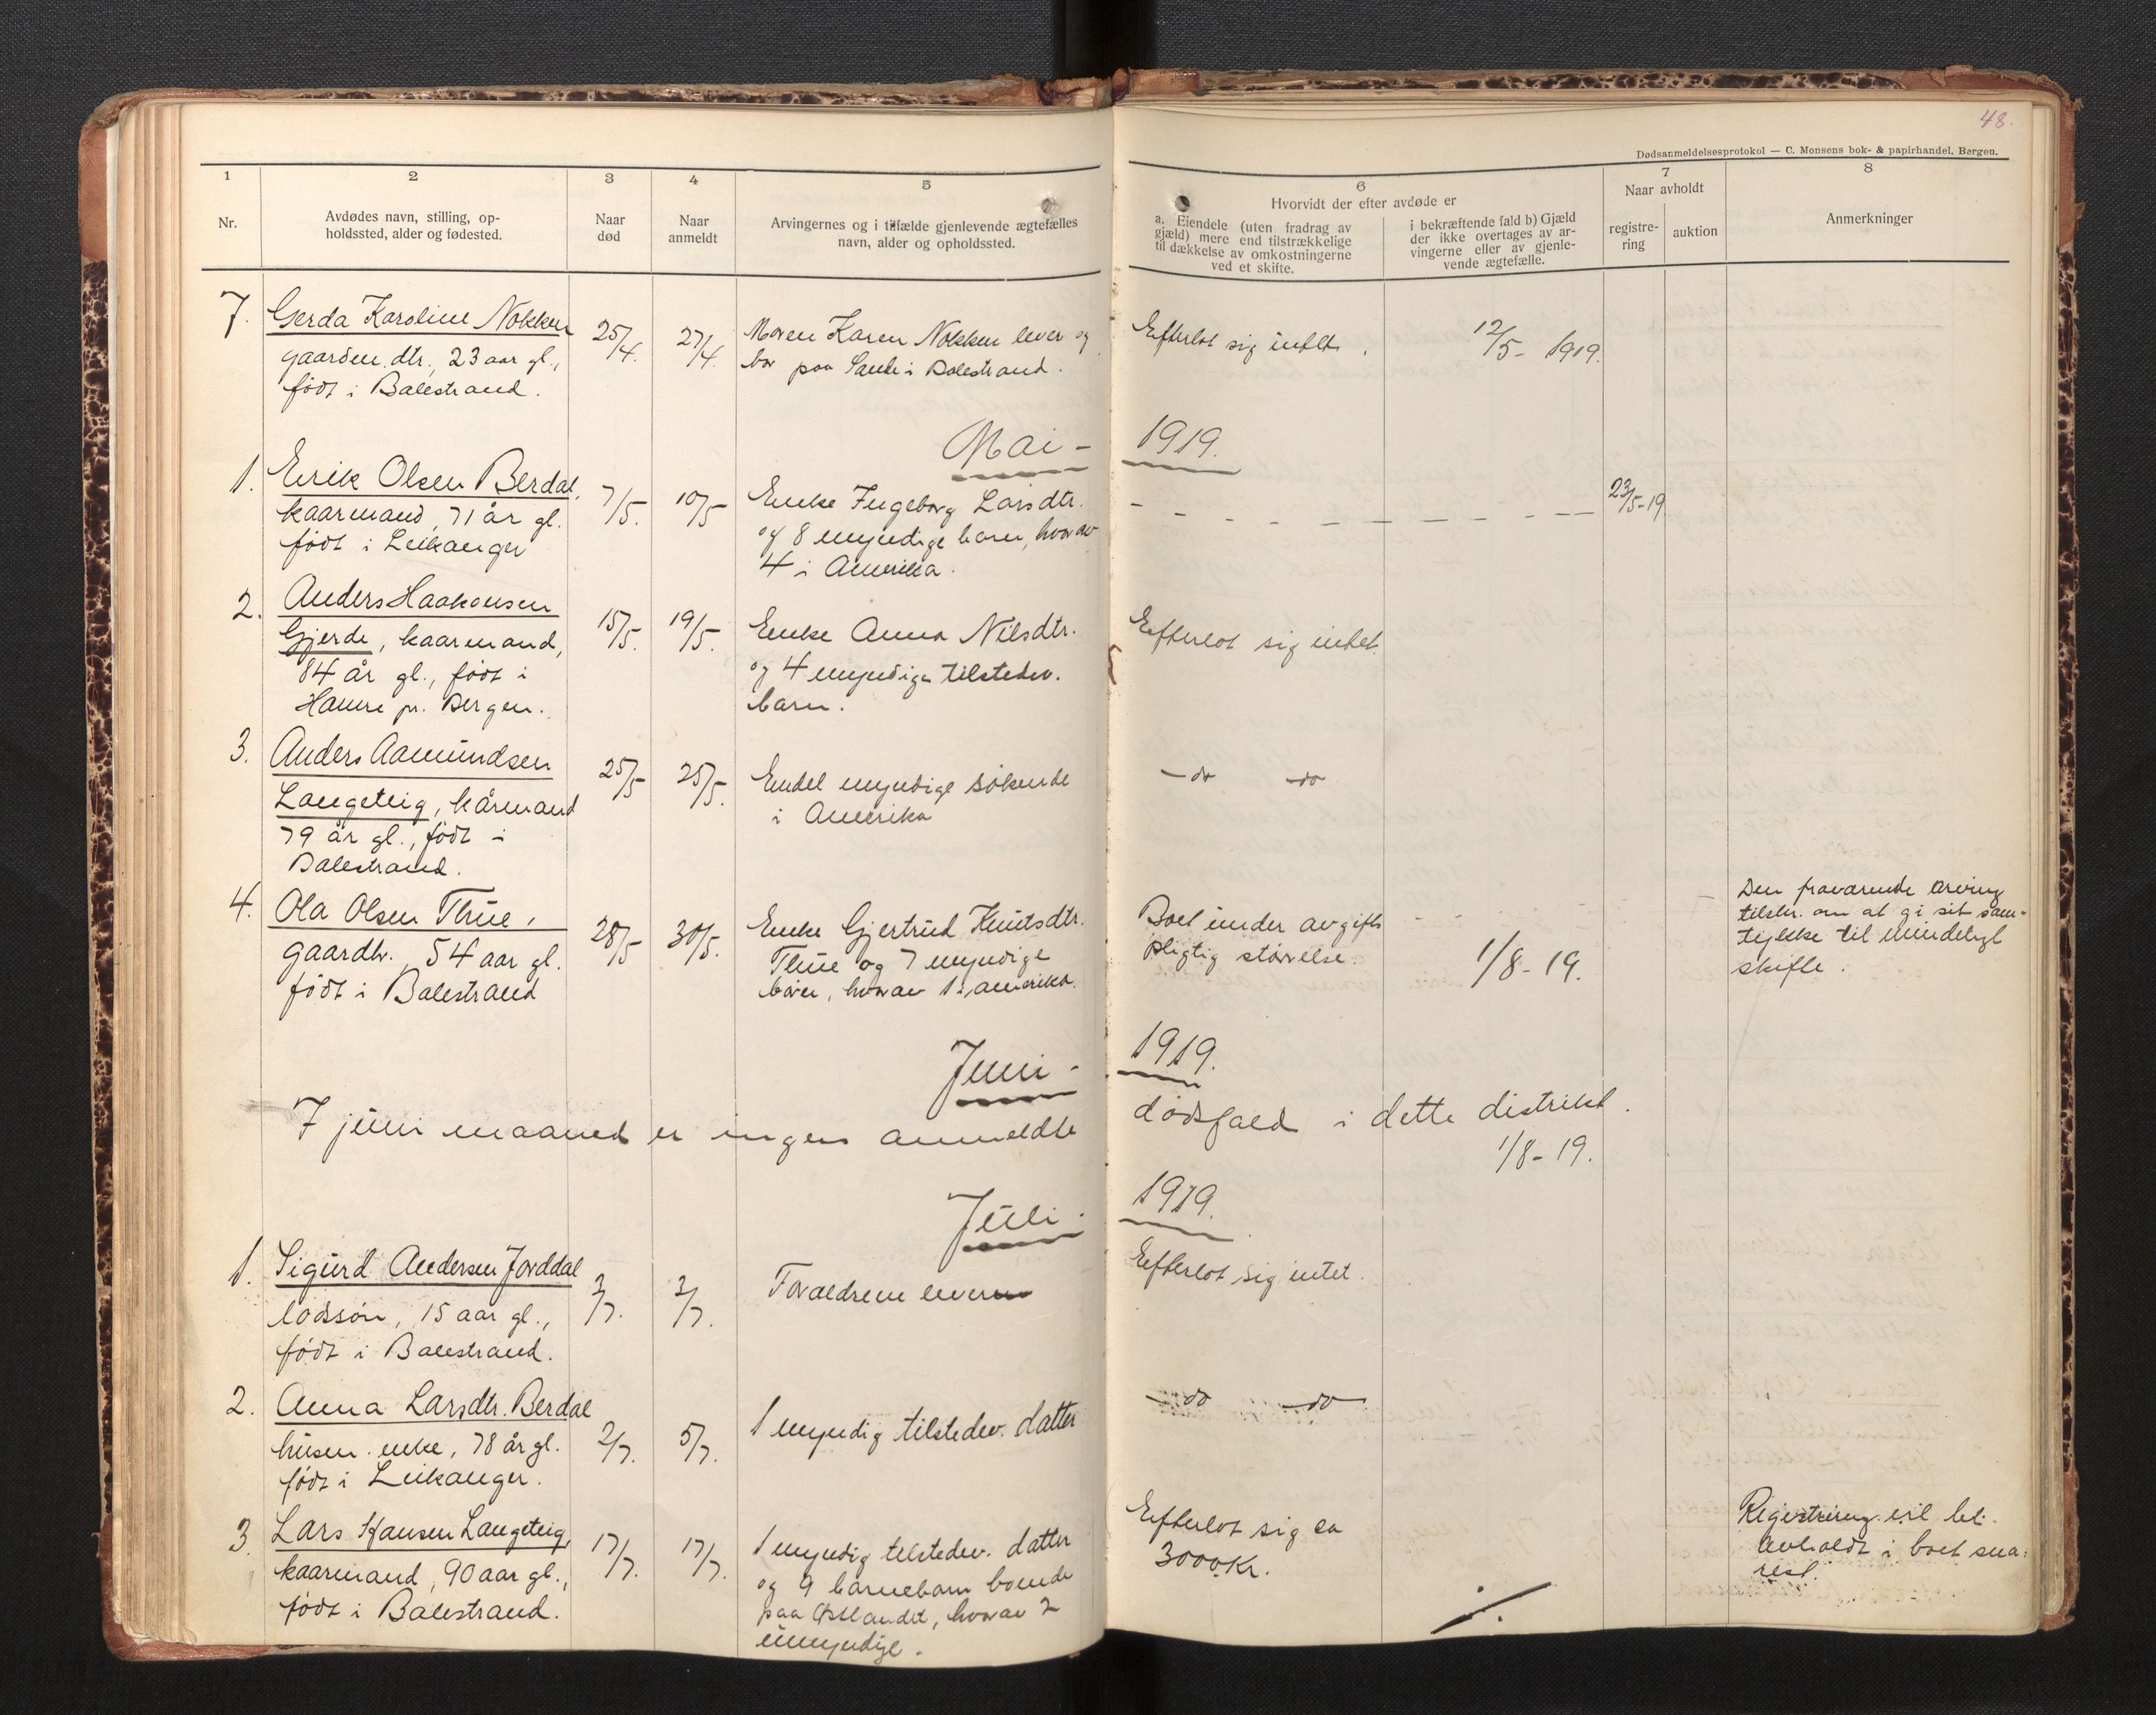 48.
Dødsanmeldelsesprotokol — C. Monsens bok- & papirhandel, Bergen.
1
2
3
4
5
6
7
8
Nr.
Avdødes navn, stilling, op-
holdssted, alder og fødested.
Naar
død
Naar
anmeldt
Arvingernes og i tilfælde gjenlevende ægtefælles
navn, alder og opholdssted.
Hvorvidt der efter avdøde er
a. Eiendele (uten fradrag av
gjæld) mere end tilstrækkelige
til dækkelse av omkostningerne
ved et skifte.
i bekræftende fald b) Gjæld
der ikke overtages av ar-
vingerne eller av gjenle-
vende ægtefælle.
Naar avholdt
registre-
ring
auktion
Anmerkninger
7. Gerda Karoline Nokken
gaarden. dtr., 23 aar gl.,
født i Balestrand.
25/4.
27/4.
Moren Karen Nokken lever og
bor paa Sande i Balestrand.
Efterlot sig intet.
12/5 - 1919.
Mai - 1919.
1. Eirik Olsen Berdal,
kaarmand, 71 år gl.
født i Leikanger
7/5.
10/5
Enke Ingeborg Larsdtr.
og 8 myndige barn, hvorav
4 i Amerika.
- - - - - - - - - - -
23/5-19
2. Anders Haakonsen
Gjerde, kaarmand,
84 år gl., født i
Hamre pr. Bergen.
15/5.
19/5.
Enke Anna Nilsdtr.
og 4 myndige tilstedev.
barn.
Efterlot sig intet.
3. Anders Aamundsen
Langeteig, kårmand
79 år gl., født i
Balestrand.
25/5
25/5.
Endel myndige søkende
i Amerika
— do — do
4. Ola Olsen Thue,
gaardbr., 54 aar gl.
født i Balestrand
28/5
30/5.
Enke Gjertrud Knutsdtr.
Thue og 7 myndige
barn, hvorav 1 i amerika.
Boet under avgifts
pligtig størrelse.
1/8 - 19.
Den fraværende arving
tilskr. om at gi sit sam-
tykke til mindeligt
skifte.
Juni - 1919.
I juni maaned er ingen anmeldte dødsfald i dette distrikt.
1/8 - 19.
Juli - 1919.
1. Sigurd Andersen Jorddal
lodssøn, 15 aar gl.,
født i Balestrand.
2/7.
3/7.
Forældrene lever
Efterlot sig intet.
2. Anna Larsdtr. Berdal
husm. enke, 78 år gl.
født i Leikanger.
2/7.
5/7.
1 myndig tilstedev. datter
— do — do —
3. Lars Hansen Langeteig,
kaarmand, 90 aar gl.,
født i Balestrand.
17/7.
17/7.
1 myndig tilstedev. datter
og 9 barnebarn boende
paa Østlandet, hvorav 2
umyndige.
Efterlot sig ca
3000 Kr.
Registrering vil bli
avholdt i boet sna-
rest